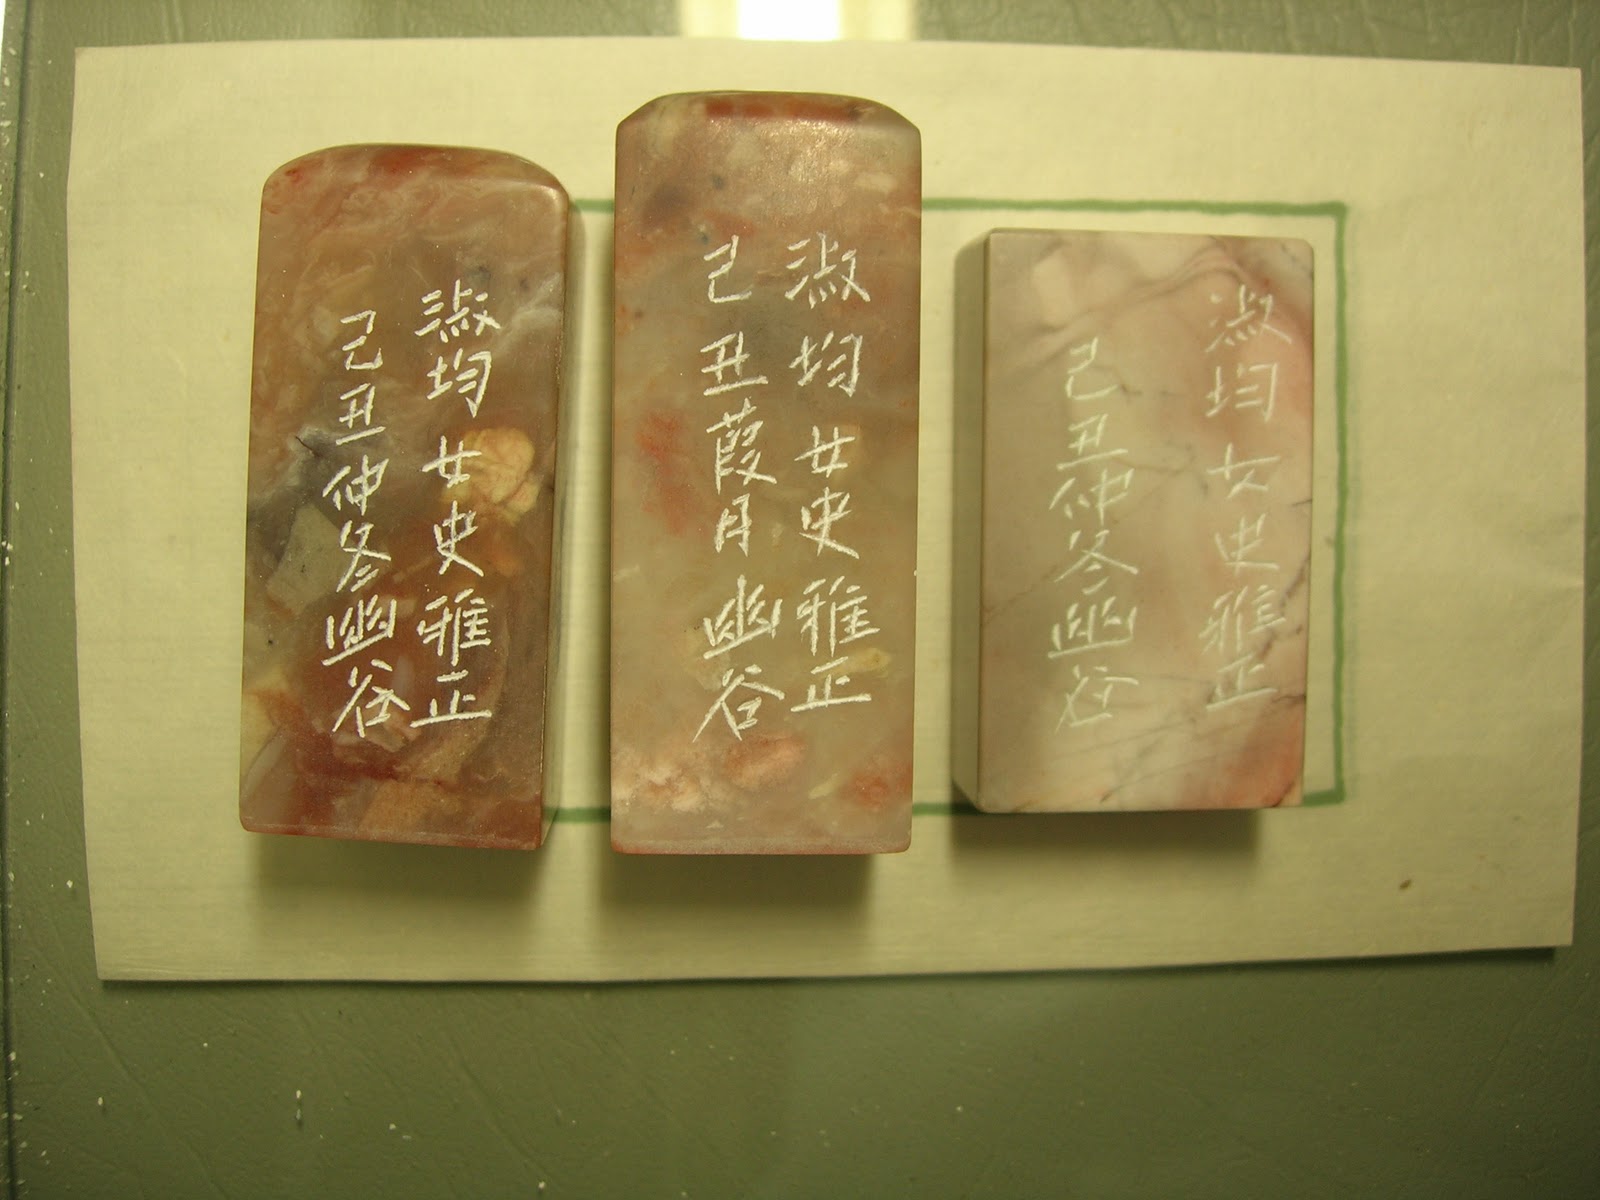 淑均女史雅正
己丑仲冬幽谷
淑均女史雅正
己丑葭月幽谷
淑均女史雅正
己丑仲冬幽谷